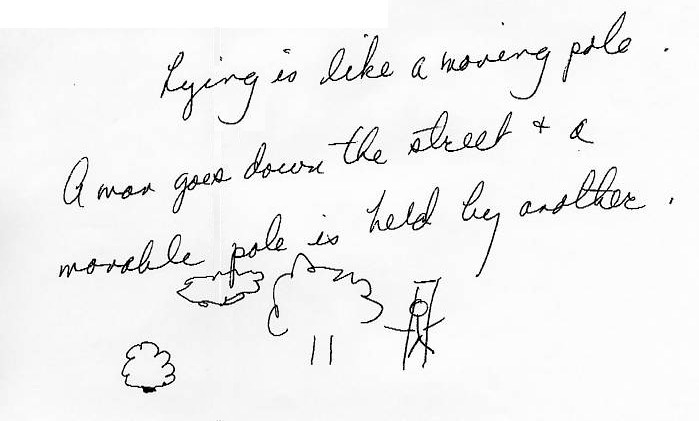 Lying is like a moving pole.
A man goes down the street + a
movable pole is held by another.